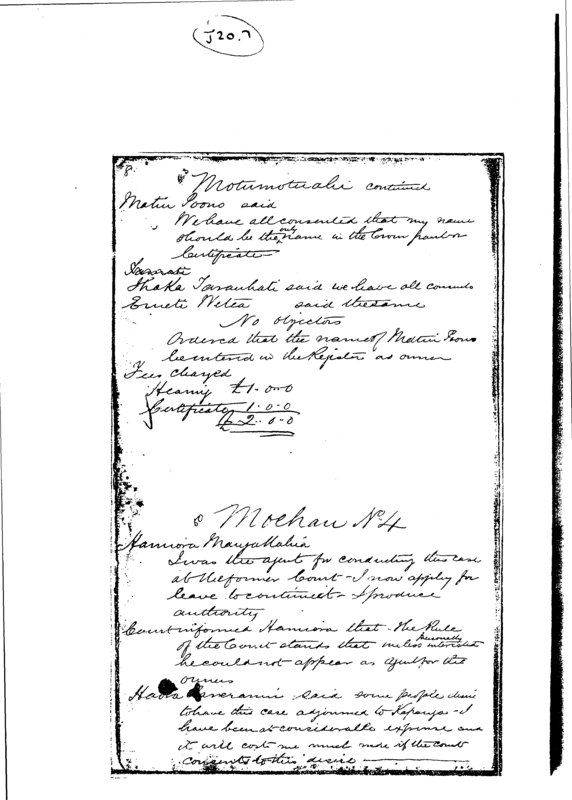 J20.7
8.
Motumotuahi continued
Matiu Poono said
We have all consented that my name
should be the only name in the Crown grant or
Certificate
Ihaka Tarauhati said we have all consented
Erueti Wetea said the same
No objectors
Ordered that the name of Matiu Poono
be entered in the Register as owner
Fees charged
Hearing £1-0-0
Certificate 1-0-0
£2-0-0
8 Moehau No 4
Haniora
I was the agent for conducting this case
at the former Court - I now apply for
leave to continue it - I produce
authority
Court informed Haniora that - the Rule
of the Court stands that unless personally interested
he could not appear as agent for the
owners
said some people desire
to have this case adjourned to Kapanga - I
have been at considerable expense and
it will cost me much more if the court
consents to this desire